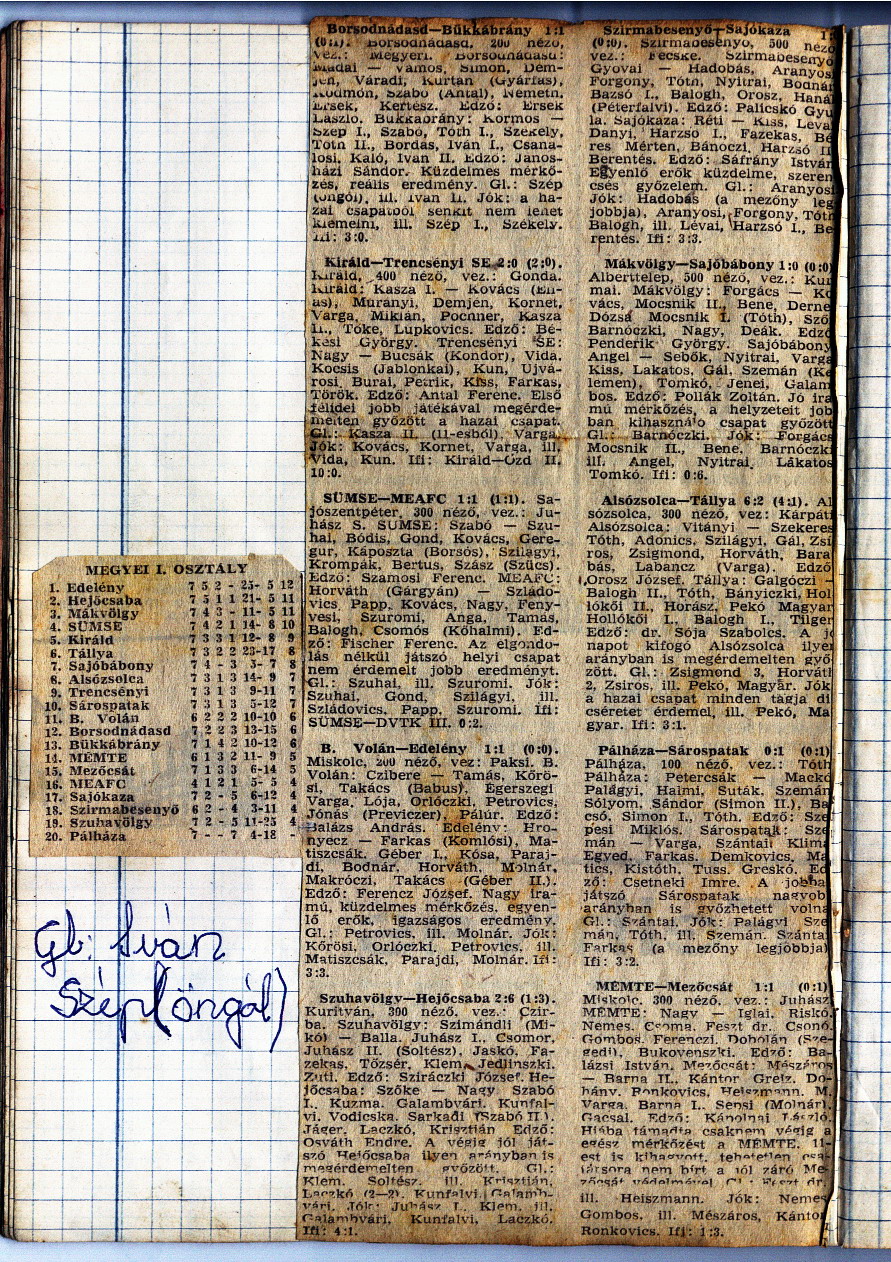 Borsodnádasd—Bükkábrány 1:1
(0:1). Borsodnádasd, 200 néző,
vez.: Megyeri. Borsodnádasd:
Madai — Vámos, Simon, Dem-
jén, Váradi, Kurtán (Gyárfás),
Ködmön, Szabó (Antal), Németh,
Érsek, Kertész. Edző: Érsek
László. Bükkábrány: Kormos —
Szép I., Szabó, Tóth I., Székely,
Tóth II., Bordás, Iván I., Csana-
losi, Kaló, Iván II. Edző: János-
házi Sándor. Küzdelmes mérkő-
zés, reális eredmény. Gl.: Szép
(öngól), ill. Iván II. Jók: a ha-
zai csapatból senkit nem lehet
kiemelni, ill. Szép I., Székely.
Ifi: 3:0.
Királd—Trencsényi SE 2:0 (2:0).
Királd, 400 néző, vez.: Gonda.
Királd: Kasza I. — Kovács
Murányi, Demjén, Kornet,
Varga, Miklán, Pochner, Kasza
II., Tőke, Lupkovics. Edző: Bé-
kési György. Trencsényi SE:
Nagy — Bucsák (Kondor), Vida,
Kocsis (Jablonkai), Kun, Ujvá-
rosi, Burai, Petrik, Kiss, Farkas,
Török. Edző: Antal Ferenc. Első
félidei jobb játékával megérde-
melten győzött a hazai csapat.
Gl.: Kasza II. (11-esből), Varga.
Jók: Kovács, Kornet, Varga, ill.
Vida, Kun. Ifi: Királd—Ózd II.
10:0.
SÜMSE—MEAFC 1:1 (1:1). Sa-
jószentpéter, 300 néző, vez.: Ju-
hász S. SÜMSE: Szabó — Szu-
hai, Bódis, Gond, Kovács, Gere-
gur, Káposzta (Borsós), Szilágyi,
Krompák, Bertus, Szász (Szűcs).
Edző: Szamosi Ferenc. MEAFC:
Horváth (Gárgyán) — Szládo-
vics, Papp, Kovács, Nagy, Feny-
vesi, Szuromi, Anga, Tamás,
Balogh, Csomós (Kőhalmi). Ed-
ző: Fischer Ferenc. Az elgondo-
lás nélkül játszó helyi csapat
nem érdemelt jobb eredményt.
Gl.: Szuhai, ill. Szuromi. Jók:
Szuhai, Gond, Szilágyi, ill.
Szládovics, Papp, Szuromi. Ifi:
SÜMSE—DVTK III. 0:2.
B. Volán—Edelény 1:1 (0:0).
Miskolc, 200 néző, vez: Paksi. B.
Volán: Czibere — Tamás, Kőrö-
si, Takács (Babus), Egerszegi
Varga, Lója, Orlóczki, Petrovics,
Jónás (Previczer), Pálúr. Edző:
Balázs András. Edelény: Hro-
nyecz — Farkas (Komlósi), Ma-
tiszcsák, Géber I., Kósa, Paraj-
di, Bodnár, Horváth, Molnár,
Makróczi, Takács (Géber II.).
Edző: Ferencz József. Nagy ira-
mú, küzdelmes mérkőzés, egyen-
lő erők, igazságos eredmény.
Gl.: Petrovics, ill. Molnár. Jók:
Kőrösi, Orlóczki, Petrovics, ill.
Matiszcsák, Parajdi, Molnár. Ifi:
3:3.
Szuhavölgy—Hejőcsaba 2:6 (1:3).
Kurityán, 300 néző, vez.: Czir-
ba. Szuhavölgy: Szimándli (Mi-
kó) — Balla, Juhász I., Csomor,
Juhász II. (Soltész), Jaskó, Fa-
zekas, Tőzsér, Klem, Jedlinszki,
Zuti. Edző: Sziráczki József. He-
jőcsaba: Szőke — Nagy Szabó
I., Kuzmai, Galambvári, Kunfal-
vi, Vodicska, Sarkadi (Szabó II.),
Jáger, Laczkó, Krisztián Edző:
Osváth Endre. A végig jól ját-
szó Hejőcsaba ilyen arányban is
megérdemelten győzött. Gl.:
Klem, Soltész, ill. Krisztián,
Laczkó (2—2), Kunfalvi, Galamb-
vári. Jók: Juhász I., Klem, ill.
Galambvári, Kunfalvi, Laczkó.
Ifi: 4:1.
Szirmabesenyő—Sajókaza 1:
(0:0). Szirmabesenyő, 500 néző
vez.: Fecske. Szirmabesenyő
Gyovai — Hadobás, Aranyos
Forgony, Tóth, Nyitrai, Bodnár
Bazsó I., Balogh, Orosz, Haná
(Péterfalvi). Edző: Palicskó Gyu
la. Sajókaza: Réti — Kiss, Léva
Danyi, Harzsó I., Fazekas, Bé
res Mérten, Bánoczi, Harzsó II
Berentés. Edző: Sáfrány István
Egyenlő erők küzdelme, szeren
csés győzelem. Gl.: Aranyosi
Jók: Hadobás (a mezőny leg
jobbja), Aranyosi, Forgony, Tóth
Balogh, ill. Lévai, Harzsó I., Be
rentés. Ifi: 3:3.
Mákvölgy—Sajóbábony 1:0 (0:0)
Alberttelep, 500 néző, vez.: Kur
mai. Mákvölgy: Forgács — Ko
vács, Mocsnik II., Bene, Derne
Dózsa Mocsnik I. (Tóth), Sző
Barnóczki, Nagy, Deák. Edző
Penderik György. Sajóbábony
Angel — Sebők, Nyitrai, Varga
Kiss, Lakatos, Gál, Szemán (Ke
lemen), Tomkó, Jenei, Galam
bos. Edző: Pollák Zoltán. Jó ira
mú mérkőzés, a helyzeteit job
ban kihasználó csapat győzött
Gl.: Barnóczki. Jók: Forgács
Mocsnik II., Bene, Barnóczki
ill. Angel, Nyitrai, Lakatos
Tomkó. Ifi: 0:6.
Alsózsolca—Tállya 6:2 (4:1). Al
sózsolca, 300 néző, vez: Kárpáti
Alsózsolca: Vitányi — Szekeres
Tóth, Adonics, Szilágyi, Gál, Zsi
ros, Zsigmond, Horváth, Bara
bás, Labancz (Varga). Edző
Orosz József. Tállya: Galgóczi —
Balogh II., Tóth, Bányiczki, Hol
lókői II., Horász, Pekó Magyar
Hollókői I., Balogh I., Tilger
Edző: dr. Sója Szabolcs. A jó
napot kifogó Alsózsolca ilyen
arányban is megérdemelten győ
zött. Gl.: Zsigmond 3, Horváth
2, Zsiros, ill. Pekó, Magyar. Jók
a hazai csapat minden tagja di
cséretet érdemel, ill. Pekó, Ma
gyar. Ifi: 3:1.
Pálháza—Sárospatak 0:1 (0:1)
Pálháza, 100 néző, vez.: Tóth
Pálháza: Petercsák — Mackó
Palágyi, Halmi, Suták, Szemán
Sólyom, Sándor (Simon II.), Ba
csó, Simon I., Tóth. Edző: Sze
pesi Miklós. Sárospatak: Sze
mán — Varga, Szántai Klima
Egyed, Farkas, Demkovics, Ma
tics, Kistóth, Tuss, Greskó. Ed
ző: Csetneki Imre. A jobban
játszó Sárospatak nagyobb
arányban is győzhetett volna
Gl.: Szántai. Jók: Palágyi Sze
mán, Tóth, ill. Szemán, Szántai
Farkas (a mezőny legjobbja)
Ifi: 3:2.
MÉMTE—Mezőcsát 1:1 (0:1)
Miskolc, 300 néző, vez.: Juhász
MÉMTE: Nagy — Iglai, Riskó,
Nemes, Csoma, Feszt dr., Csonó,
Gombos, Ferenczi, Dobolán (Sze
gedi), Bukovenszki. Edző: Ba-
lázsi István. Mezőcsát: Mészáros
— Barna II., Kántor Greiz, Do-
hány, Ronkovics, Heiszmann, M.
Varga, Barna I., Sepsi (Molnár),
Gacsal. Edző: Kápolnai László.
Hiába támadta csaknem végig a
egész mérkőzést a MÉMTE, 11-
est is kihagyott, tehetetlen csa-
társora nem bírt a jól záró Me-
zőcsát védelmével. Gl.: Feszt dr.
ill. Heiszmann. Jók: Nemes
Gombos, ill. Mészáros, Kántor
Ronkovics. Ifi: 1:3.
MEGYEI I. OSZTÁLY
1. Edelény 7 5 2 - 25- 5 12
2. Hejőcsaba 7 5 1 1 21- 5 11
3. Mákvölgy 7 4 3 - 11- 5 11
4. SÜMSE 7 4 2 1 14- 8 10
5. Királd 7 3 3 1 12- 8 9
6. Tállya 7 3 2 2 23-17 8
7. Sajóbábony 7 4 - 3 3- 7 8
8. Alsózsolca 7 3 1 3 14- 9 7
9. Trencsényi 7 3 1 3 9-11 7
10. Sárospatak 7 3 1 3 5-12 7
11. B. Volán 6 2 2 2 10-10 6
12. Borsodnádasd 7 2 2 3 13-15 6
13. Bükkábrány 7 1 4 2 10-12 6
14. MÉMTE 6 1 3 2 11- 9 5
15. Mezőcsát 7 1 3 3 6-14 5
16. MEAFC 4 1 2 1 5- 5 4
17. Sajókaza 7 2 - 5 6-12 4
18. Szirmabesenyő 6 2 - 4 3-11 4
19. Szuhavölgy 7 2 - 5 11-25 4
20. Pálháza 7 - - 7 4-18 -
Gl: Iván
Szép (öngól)